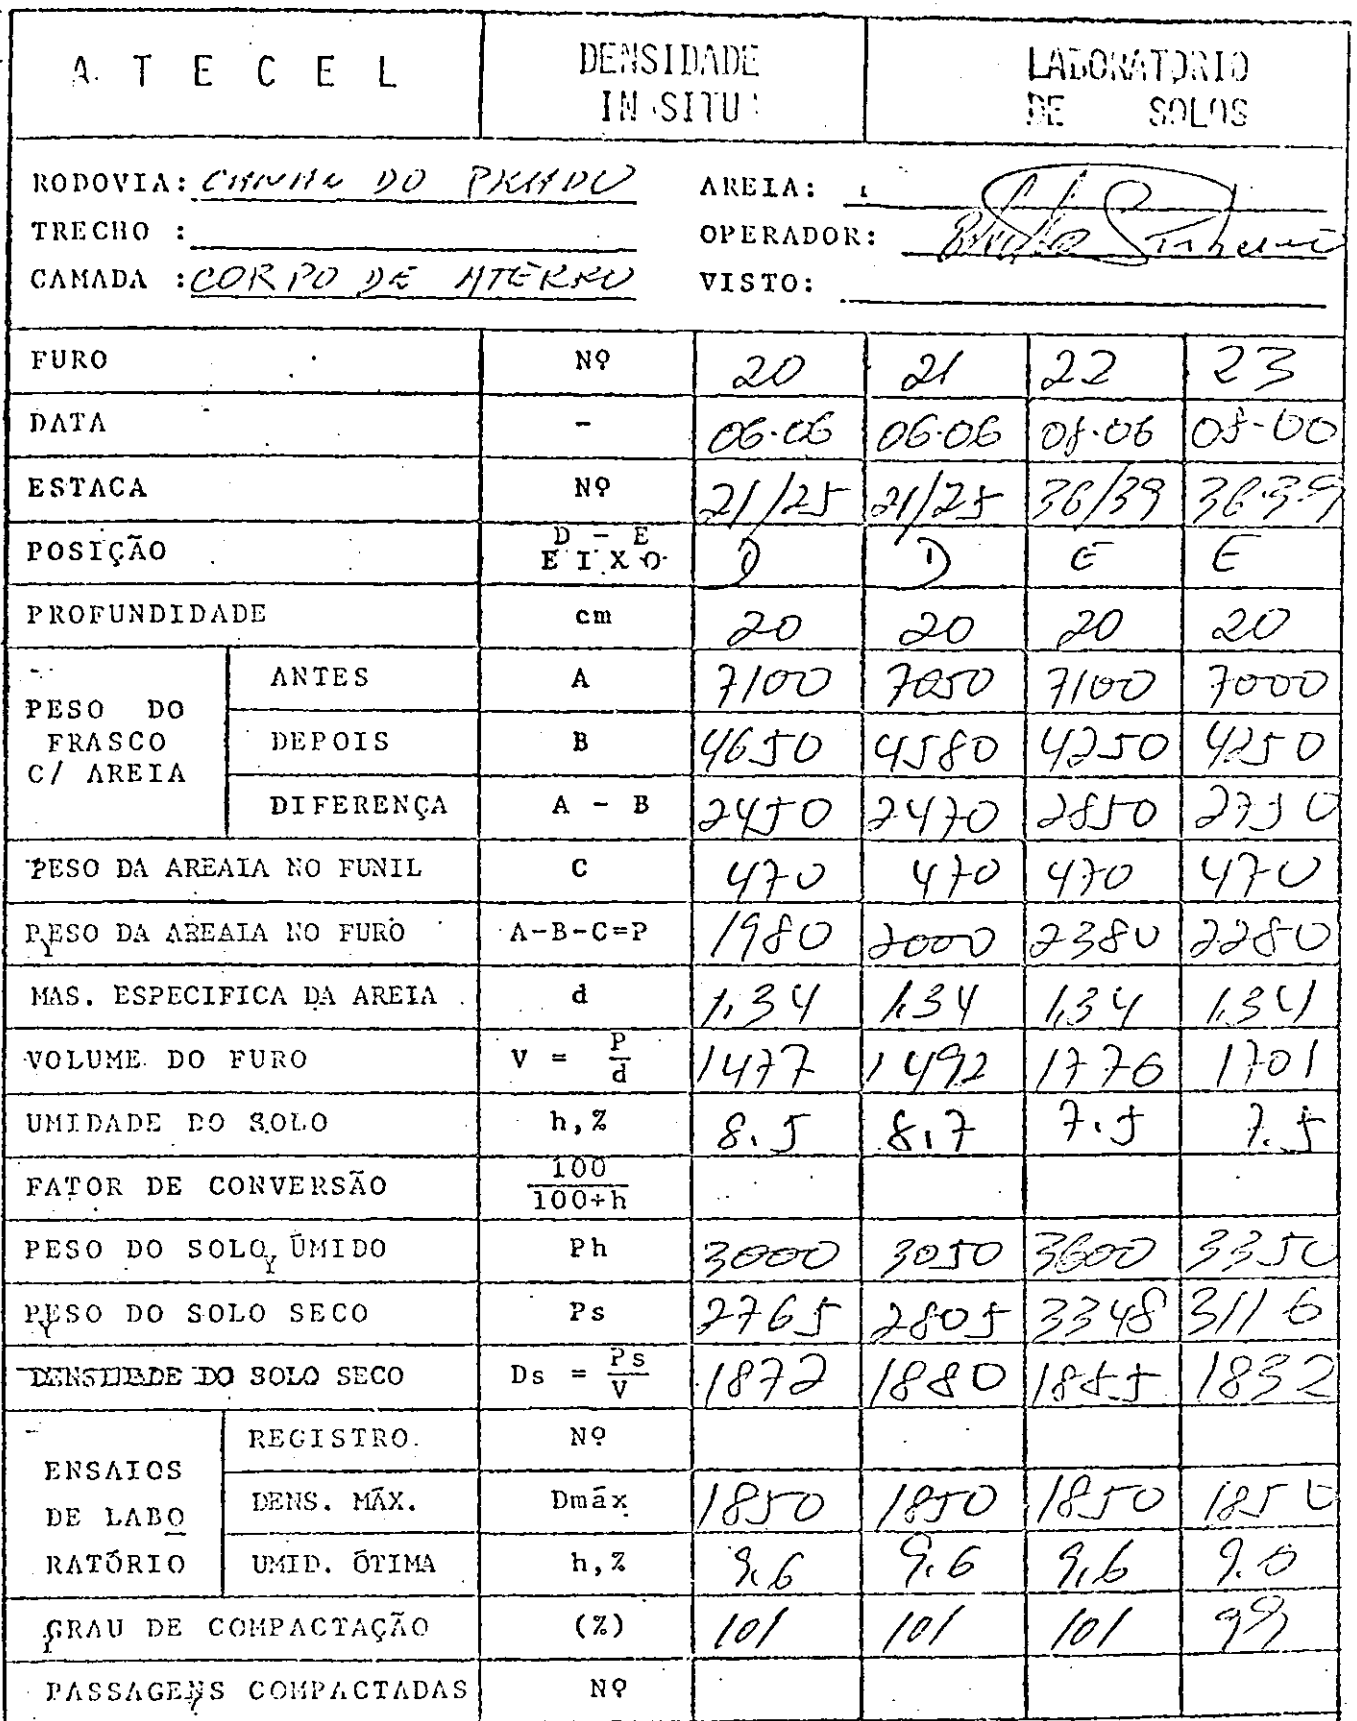 A T E C E L
DENSIDADE
IN SITU
LABORATORIO
DE SOLOS
RODOVIA: DO
AREIA:
TRECHO :
OPERADOR:
CAMADA : CORPO DE ATERRO
VISTO:
FURO Nº 20 21 22 23
DATA - 06.06 06.06 08.06
ESTACA Nº 21/25 21/25 36/39 36.39
POSIÇÃO D - E EIXO D D E E
PROFUNDIDADE cm 20 20 20 20
PESO DO FRASCO C/ AREIA
ANTES A 7100 7050 7100 7000
DEPOIS B 4650 4580 4250 4250
DIFERENÇA A - B 2450 2470 2850 2750
PESO DA AREAIA NO FUNIL C 470 470 470 470
PESO DA AREAIA NO FURO A-B-C=P 1980 2000 2380 2280
MAS. ESPECIFICA DA AREIA d 1,34 1,34 1,34 1,34
VOLUME DO FURO V = P/d 1477 1492 1776 1701
UMIDADE DO SOLO h,% 8.5 8,7 7.5 7.5
FATOR DE CONVERSÃO 100/100+h
PESO DO SOLO ÚMIDO Ph 3000 3050 3600 3350
PESO DO SOLO SECO Ps 2765 2805 3348 3116
DENSIDADE DO SOLO SECO Ds = Ps/V 1872 1880 1885 1832
ENSAIOS DE LABORATÓRIO
REGISTRO. Nº
DENS. MÃX. Dmãx 1850 1850 1850 1850
UMID. ÕTIMA h,% 9,6 9,6 9,6
GRAU DE COMPACTAÇÃO (%) 101 101 101 99
PASSAGENS COMPACTADAS Nº